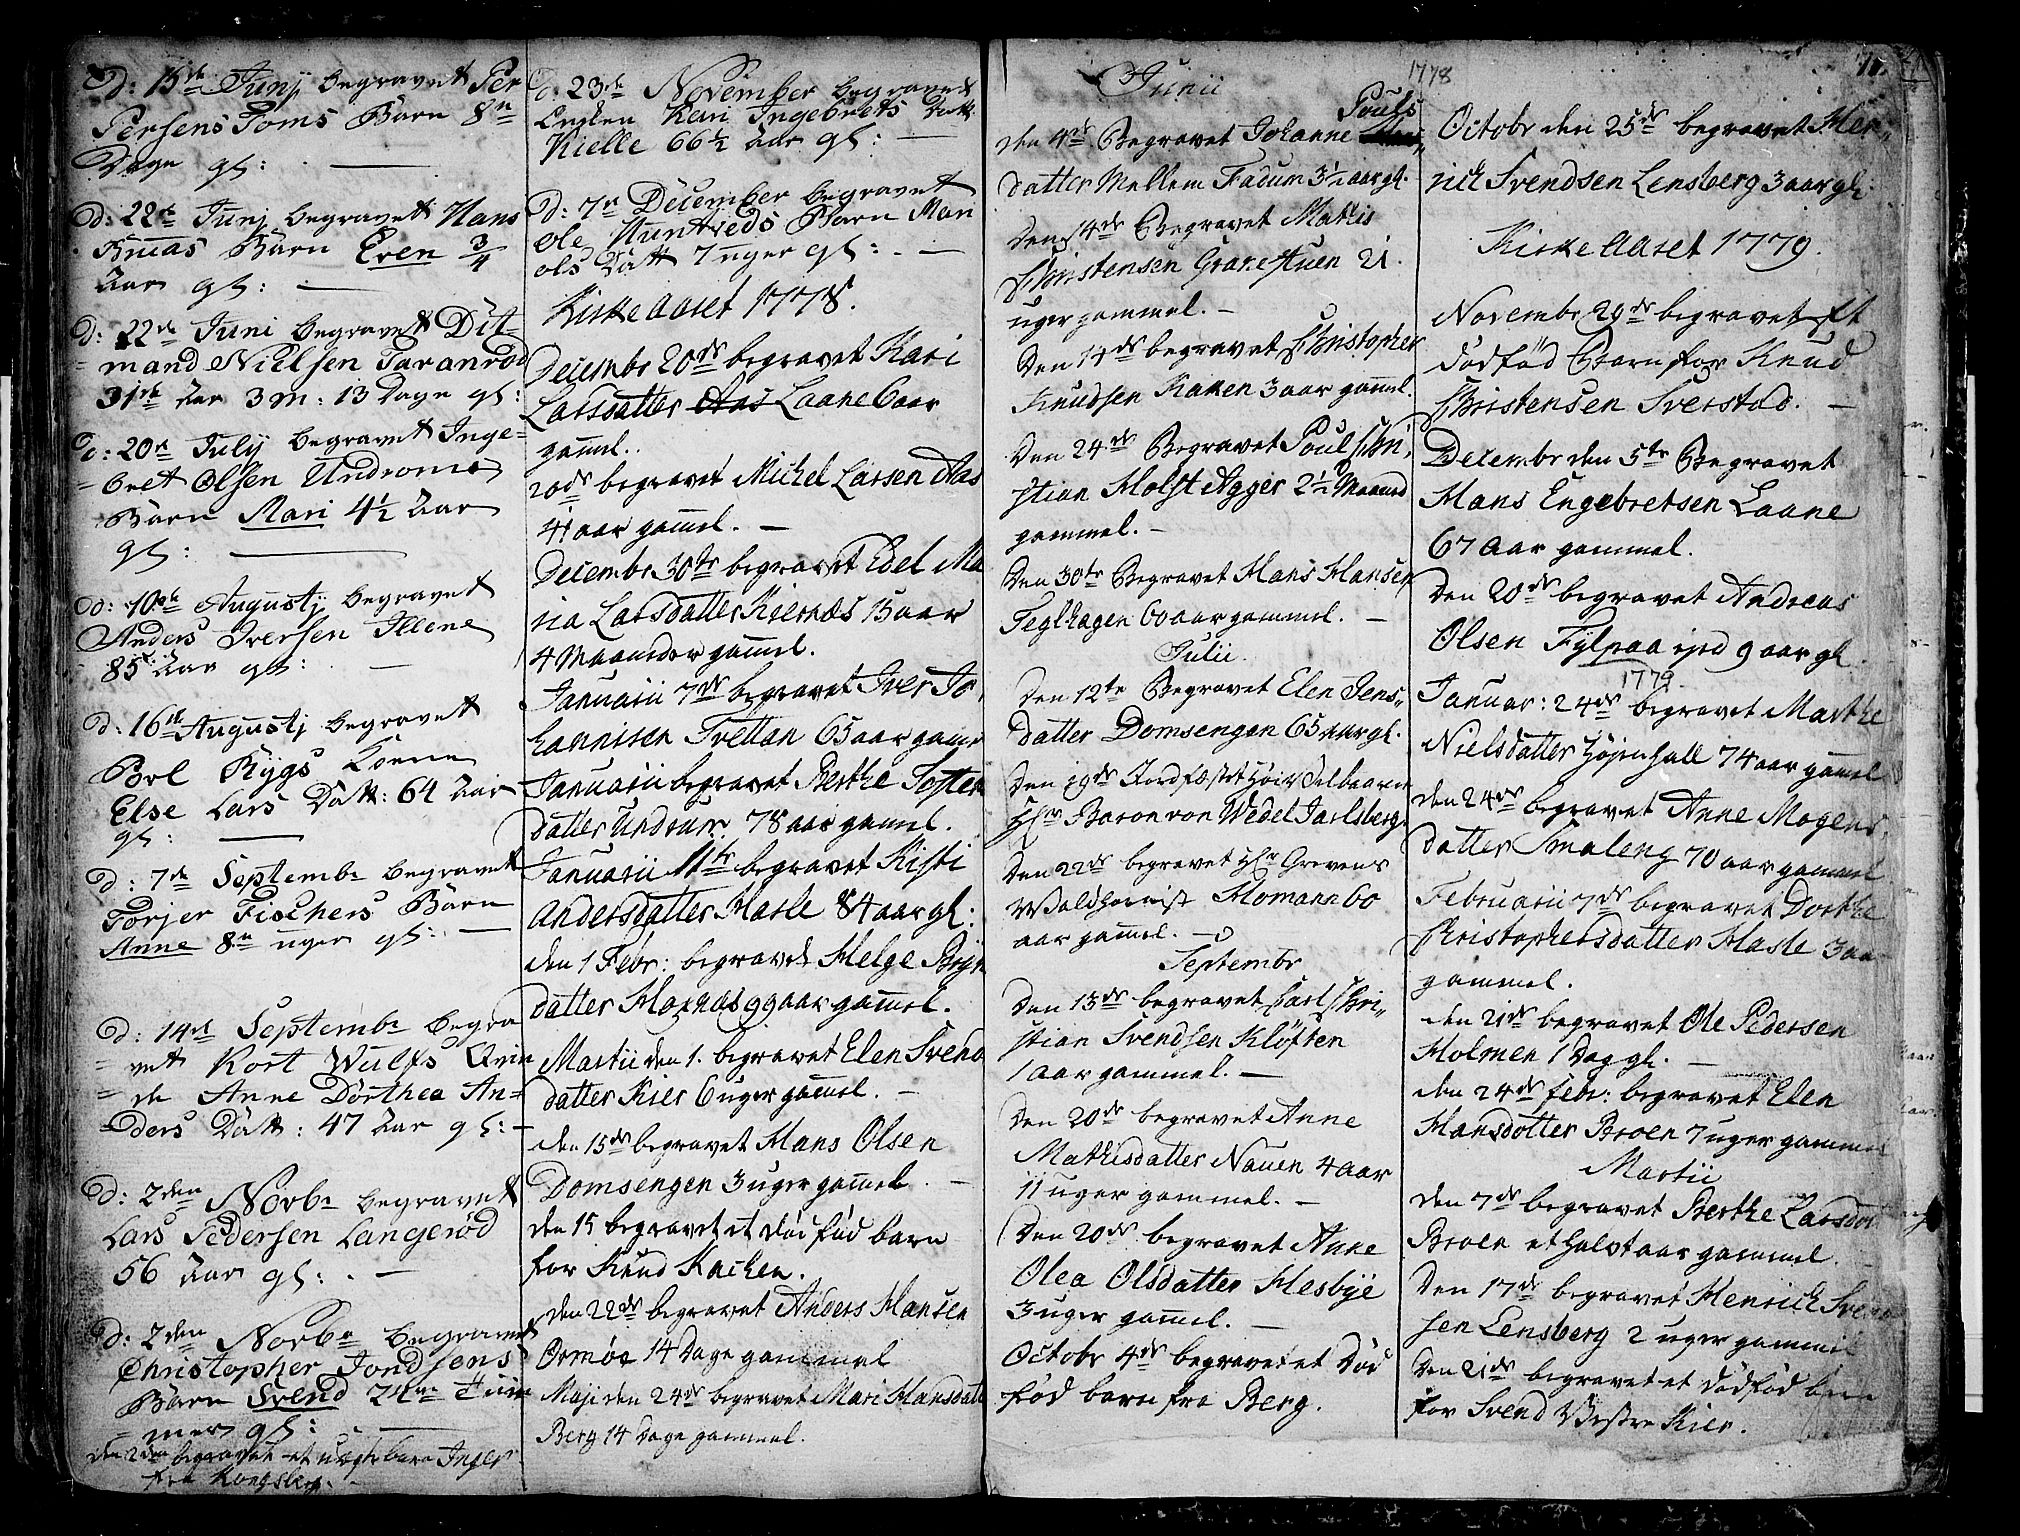 D: 15de Junj begravet Per
Persens Toms Barn 8te
Dage gl:
D: 22de Junj begravet Hans
Knuas Barn Even 3/4
Aar gl:
D: 22de Juni begravet Dit-
mand Nielsen Taranrød
31te Aar 3 M: 13 Dage gl:
D: 20de July begravet Inge-
bret Olsen Undroms
Barn Mari 4 1/2 Aar
gl:
D: 10de Augustj begravet
Anders Iversen Illene
85 Aar gl:
D: 16de Augustj begravet
Povl Rygs Konne
Else Lars Datt: 64 Aar
gl:
D: 7de Septembr begravet
Torjer Fischers Barn
Anne 8te uger gl:
D: 14de Septembr begra
vet Kort Wulfs Qvin
de Anne Dorthea An-
ders Datt: 47 Aar gl:
D: 2den Novbr begravet
Lars Pedersen Langerød
56 Aar gl:
D: 2den Novbr begravet
Christopher Jondsens
Barn Svend 24re Tim
mer gl:
den 2den begravet et uægte barn Inger
fra Kongsberg.
D: 23de November begravet
Enken Kari Ingebrets Datt
Kielle 66 1/2 Aar gl:
D: 7de December begravet
Ole Huntveds Barn Mari
Ols Datt 7 uger gl:
Kirke Aaret 1778.
Decembr 20de begravet Kari
Larsdatter Aas Laane 6 aar
gamel.
20de begravet Michel Larsen Aas
41 aar gamel.
Decembr 30te begravet Edel Ma
ria Larsdatter Kiernæs 15 aar
4 Maaneder gamel.
Januarii 7de begravet Iver Jo
hannisen Trettan 65 aar gamel
Januarii begravet Berthe Torsten
datter Undrum 78 aar gamel.
Januarii 11te begravet Kisti
Andersdatter Hasle 84 aar gl:
den 1 Febr: begravet Helge Brÿn
datter Hornæs 99 aar gamel.
Martii den 1. begravet Elen Svend
datter Kier 6 uger gamel.
den 15de begravet Hans Olsen
Domsengen 3 uger gamel
den 15 begravet et dødfød barn
for Knud Kachen.
den 22de begravet Anders Hansen
Ormøe 14 Dage gammel
Maji den 24de begravet Mari Hansdatt
Berg 14 Dage gammel.
1778
Junii
Pouls
den 4de Begravet Johanne
datter Mellem Fadum 3 1/2 aar gl.
den 14de Begravet Mathis
Christensen Gravestuen 21
uger gammel.
den 14de begravet Christopher
Knudsen Kaken 3 aar gamel.
den 24de Begravet Poul Chri-
stian Holst Agger 2 1/2 Maaned
gammel.
den 30te Begravet Hans Hansen
Teglhagen 60 aar gammel.
Julii.
den 12te Begravet Elen Jens-
datter Domsengen 65 aar gl.
den 19de Jordfæstet Høiv Velbaarne
Hr Baron von Wedel Jarlsberg.
den 22de begravet Hr Grevens
Waldhornist Homann 60
aar gamel.
Septembr
den 13de begravet Carl Chri-
stian Svendsen Kløften
1 aar gammel.
den 20de begravet Anne
Mathisdatter Nauen 4 aar
11 uger gammel.
den 20de begravet Anne
Olea Olsdatter Hesbye
3 uger gamel.
Octobr 4de begravet et Død
fød barn fra Berg.
Octobr den 25de begravet Hen-
rich Svendsen Lensberg 3 aar gl:
Kirke Aaret 1779.
Novembr 29de begravet et
dødfød Barn for Knud
Christensen Sverstad.
Decembr den 5te Begravet
Hans Engebretsen Laane
67 Aar gammel.
den 20de begravet Andreas
Olsen Fylpaa ipd 9 aar gl.
1779.
Januar: 24de begravet Marthe
Nielsdatter Højenhall 74 aar gamel
den 24de begravet Anne Mogens
datter Smaleng 70 aar gammel
Februarii 7de begravet Dorthe
Christophersdatter Hasle 3 aar
gammel.
den 21de begravet Ole Pedersen
Holmen 1 Dag gl.
den 24de Febr: begravet Elen
Hansdotter Broen 7 uger gammel
Martii
den 7de begravet Berthe Larsdat
Broen et halvt aar gammel.
den 17de begravet Henrich Svend
sen Lensberg 2 uger gammel
den 21de begravet et dødfød barn
for Svend Westre Kier.